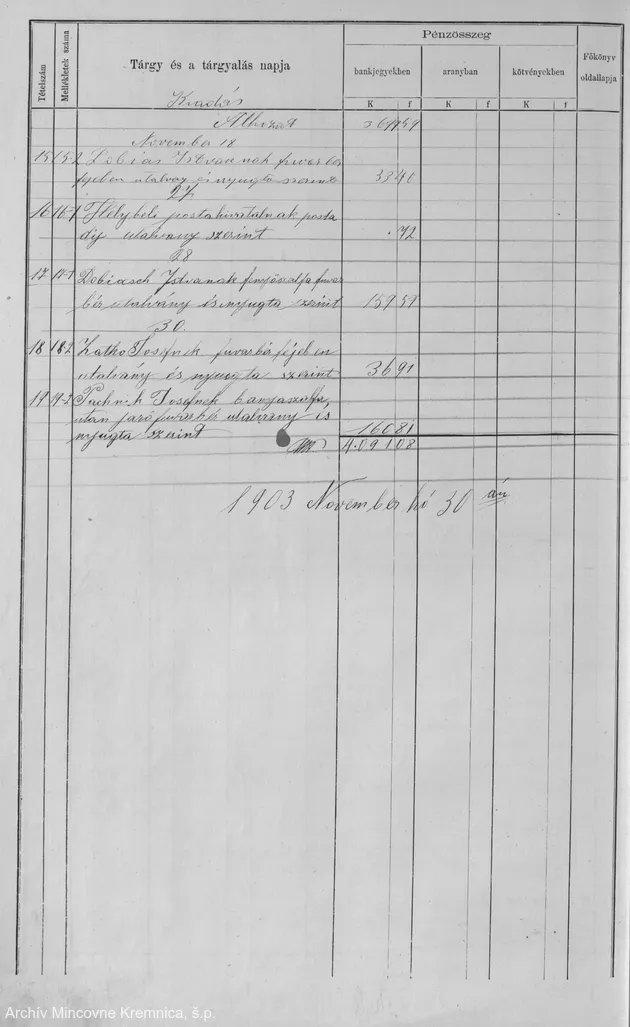 Tételszám
Mellékletek száma
Tárgy és a tárgyalás napja
Pénzösszeg
bankjegyekben
aranyban
kötvényekben
Főkönyv
oldallapja
K f K f K f
Kiadás
Áthozat
November 18
15 Istvannak fuvarbér
fejében utalvány és nyugta szerint 33 40
27
16 Helybeli postahivatalnak posta
díj utalvány szerint 72
28
17 Dobiasch Istvanak
bér utalvány és nyugta szerint 159 59
30.
18 Zatko Josefnek fuvarbér fejében
utalvány és nyugta szerint 36 91
19 Josefnek
után járó fuvarbér utalvány és
nyugta szerint 160 81
1903 November hó 30 án
Archív Mincovne Kremnica, š.p.